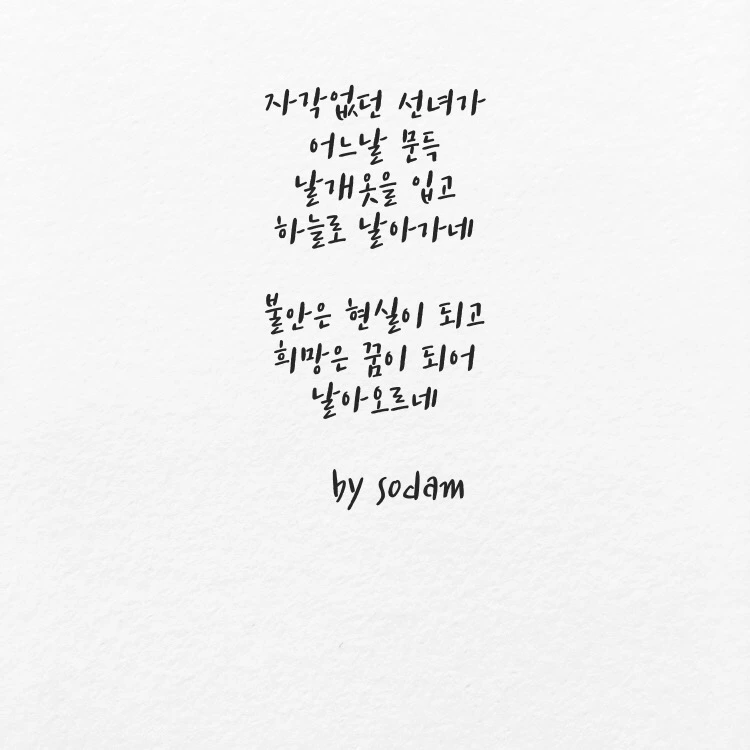 자각없던 선녀가
어느날 문득
날개옷을 입고
하늘로 날아가네
불안은 현실이 되고
희망은 꿈이 되어
날아오르네
by sodam